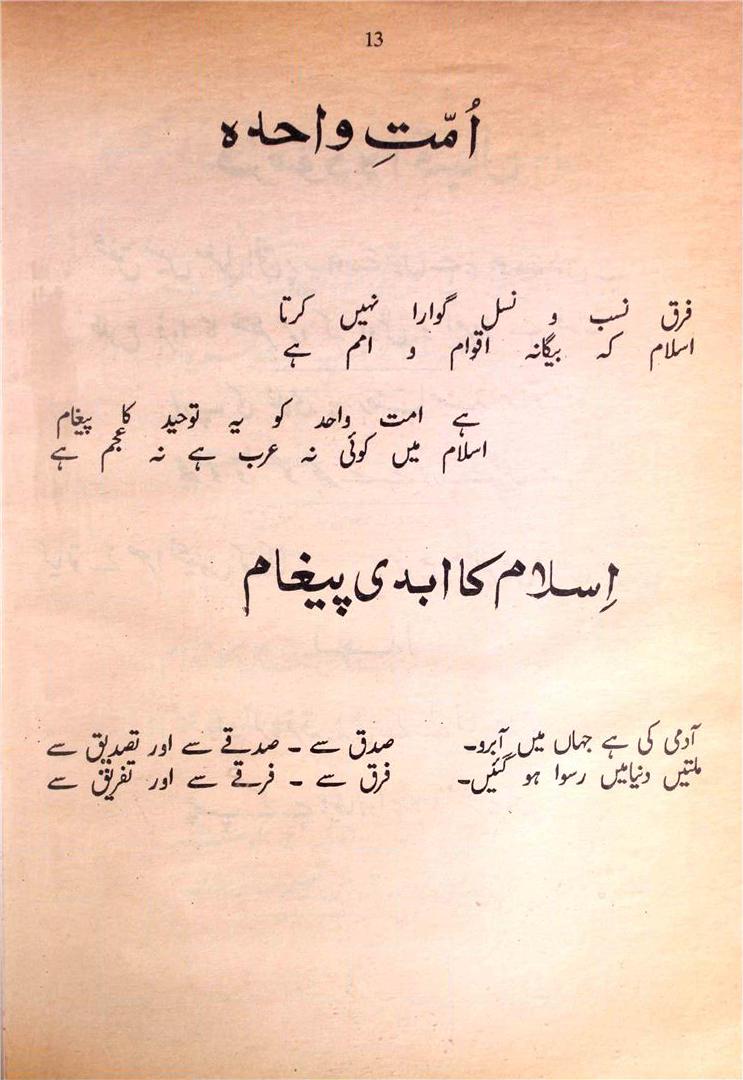 13
اُمّتِ واحدہ
فرق نسب و نسل گوارا نہیں کرتا
اسلام کہ بیگانہ اقوام و امم ہے
ہے امت واحد کو یہ توحید کا پیغام
اسلام میں کوئی نہ عرب ہے نہ عجم ہے
اِسلام کا ابدی پیغام
آدمی کی ہے جہاں میں آبرو۔ صدق سے ۔ صدقے سے اور تصدیق سے
ملتیں دنیامیں رسوا ہو گئیں۔ فرق سے ۔ فرقے سے اور تفریق سے